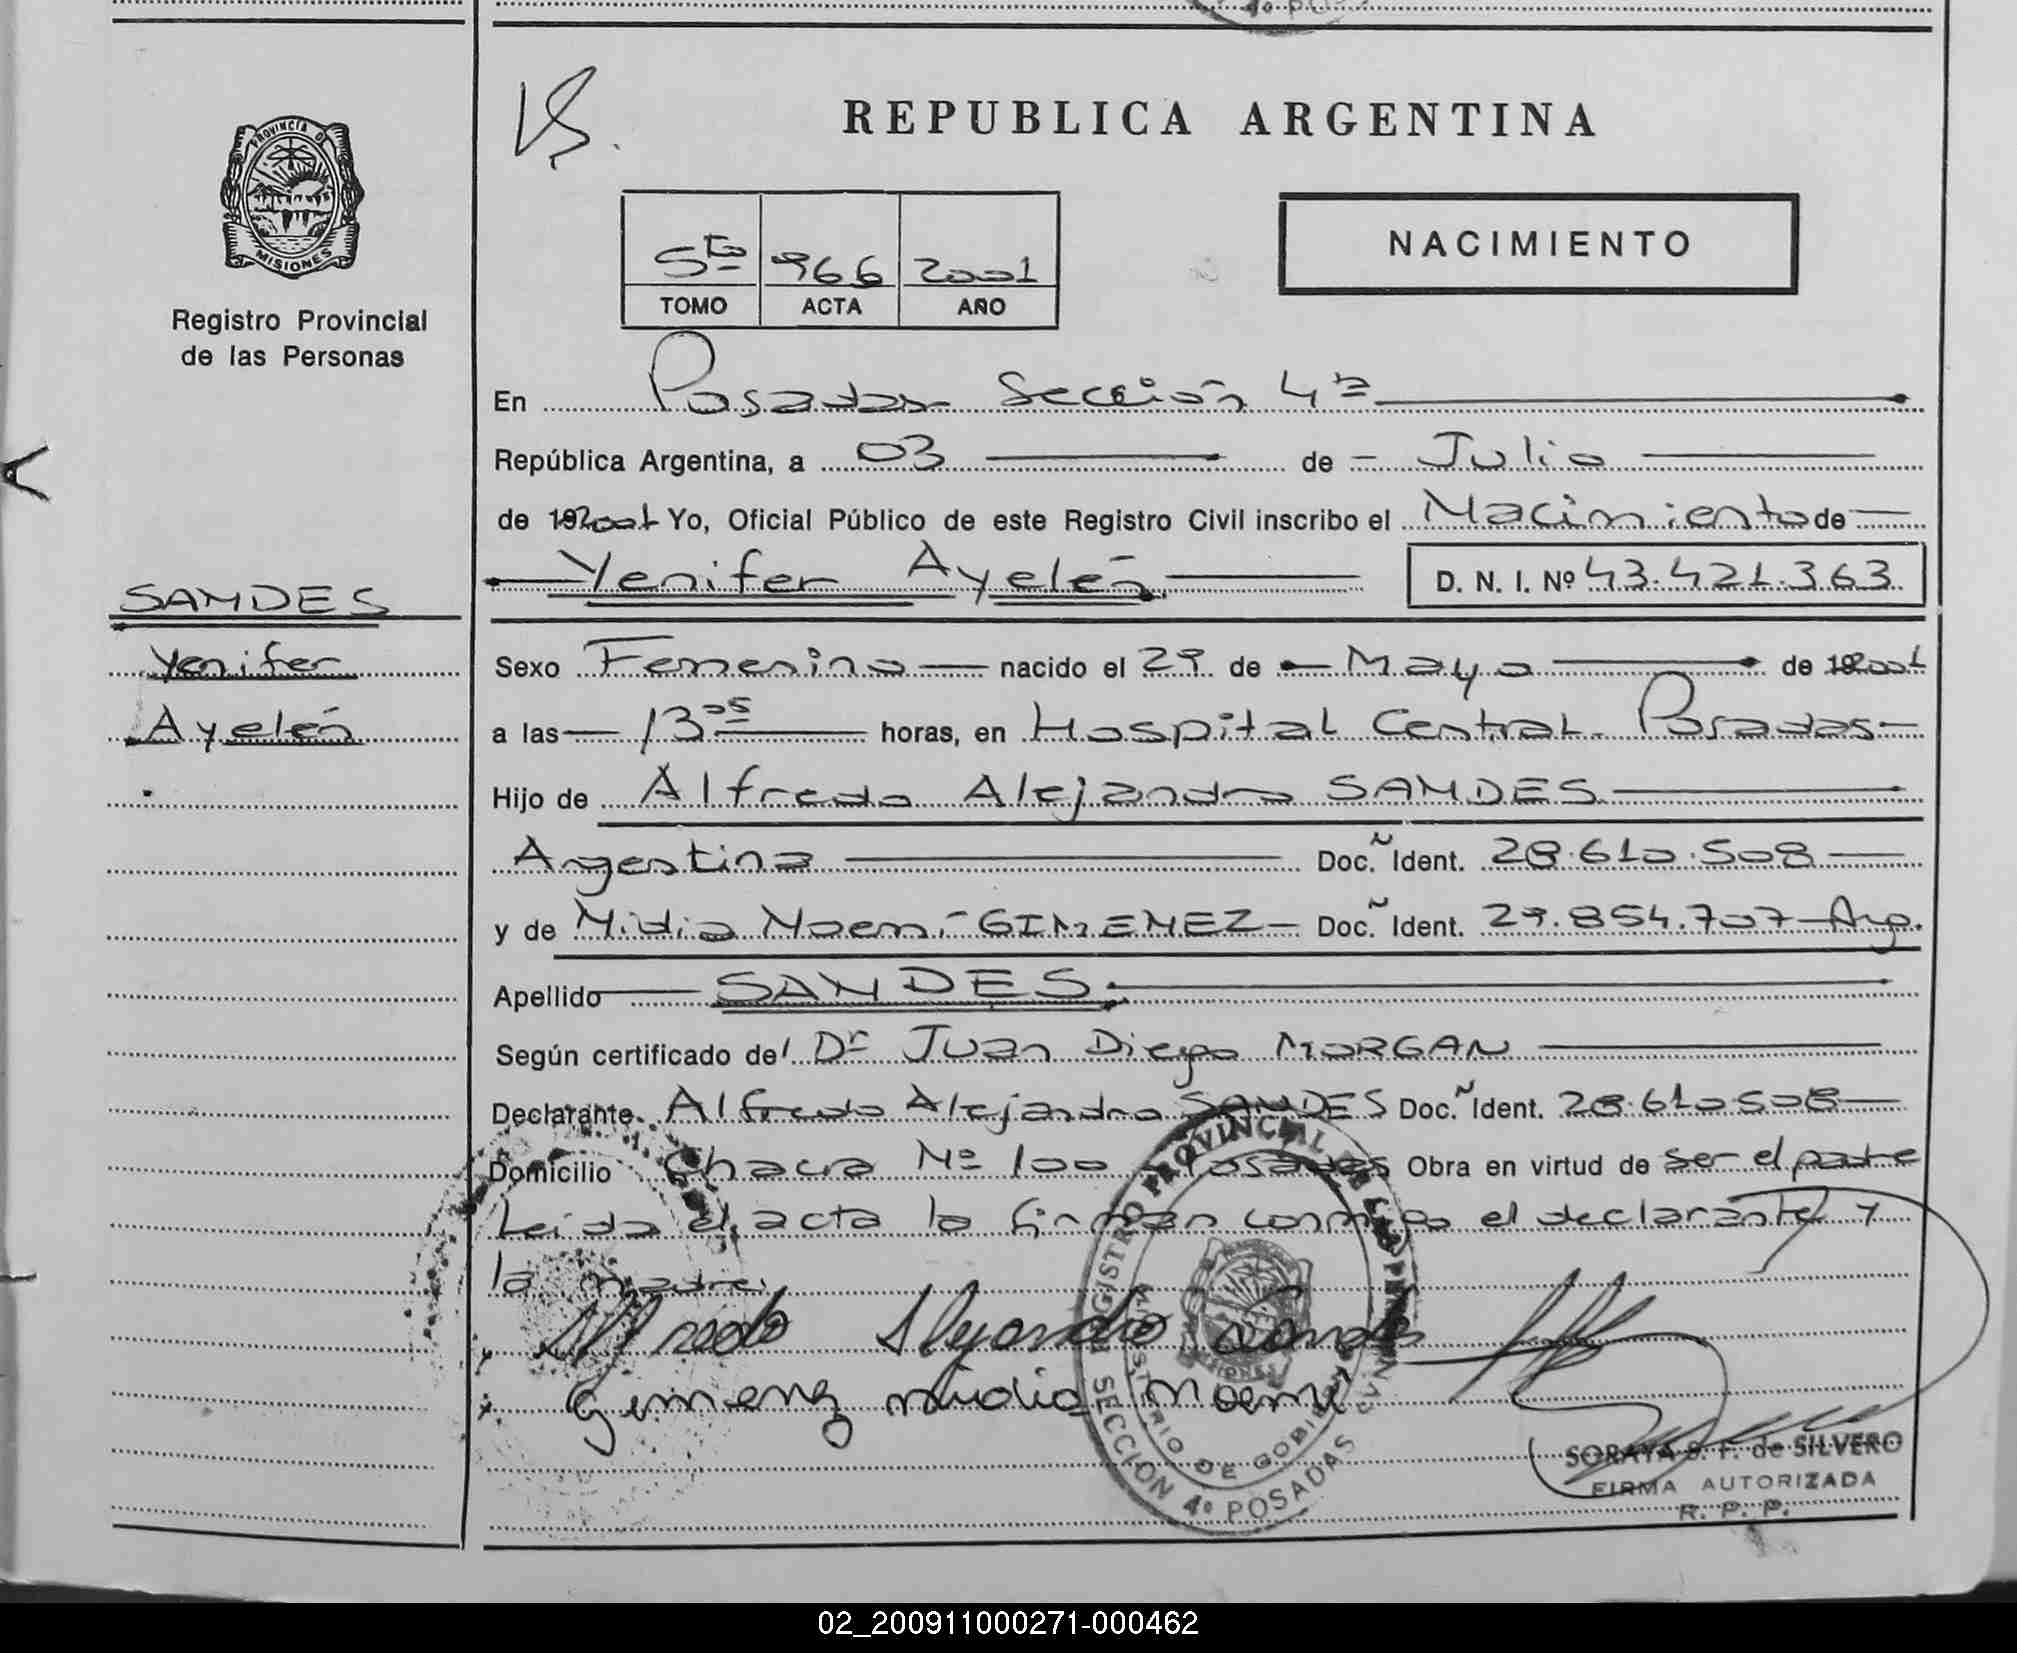 4º PO
VS.
REPUBLICA ARGENTINA
PROVINCIA DE
MISIONES
Registro Provincial
de las Personas
5to 966 2001
TOMO ACTA AÑO
NACIMIENTO
En Posadas Sección 4ta
República Argentina, a 03 de Julio
de 192001 Yo, Oficial Público de este Registro Civil inscribo el Nacimiento de
Yenifer Ayelén D. N. I. Nº 43.421.363
SANDES
Yenifer
Ayelén
Sexo Femenino nacido el 29 de Mayo de 192001
a las 13 05 horas, en Hospital Central. Posadas
Hijo de Alfredo Alejandro SANDES
Argentina Doc. Ident. 28.610.508
y de Nidia Noemí GIMENEZ Doc. Ident. 29.854.707 Arg.
Apellido SANDES
Según certificado del Dr Juan Diego MORGAN
Declarante Alfredo Alejandro SANDES Doc. Ident. 28.610508
Domicilio Chacra Nº 100 Posadas Obra en virtud de ser el padre
Leida el acta la firman conmigo el declarante y
la madre.
Alfredo Alejandro Sandes
Gimenez nidia Noemi
REGISTRO PROVINCIAL DE LAS PERSONAS
MINISTERIO DE GOBIERNO
MISIONES
SECCION 4º POSADAS
SORAYA S. F. de SILVERO
FIRMA AUTORIZADA
R. P. P.
02_200911000271-000462